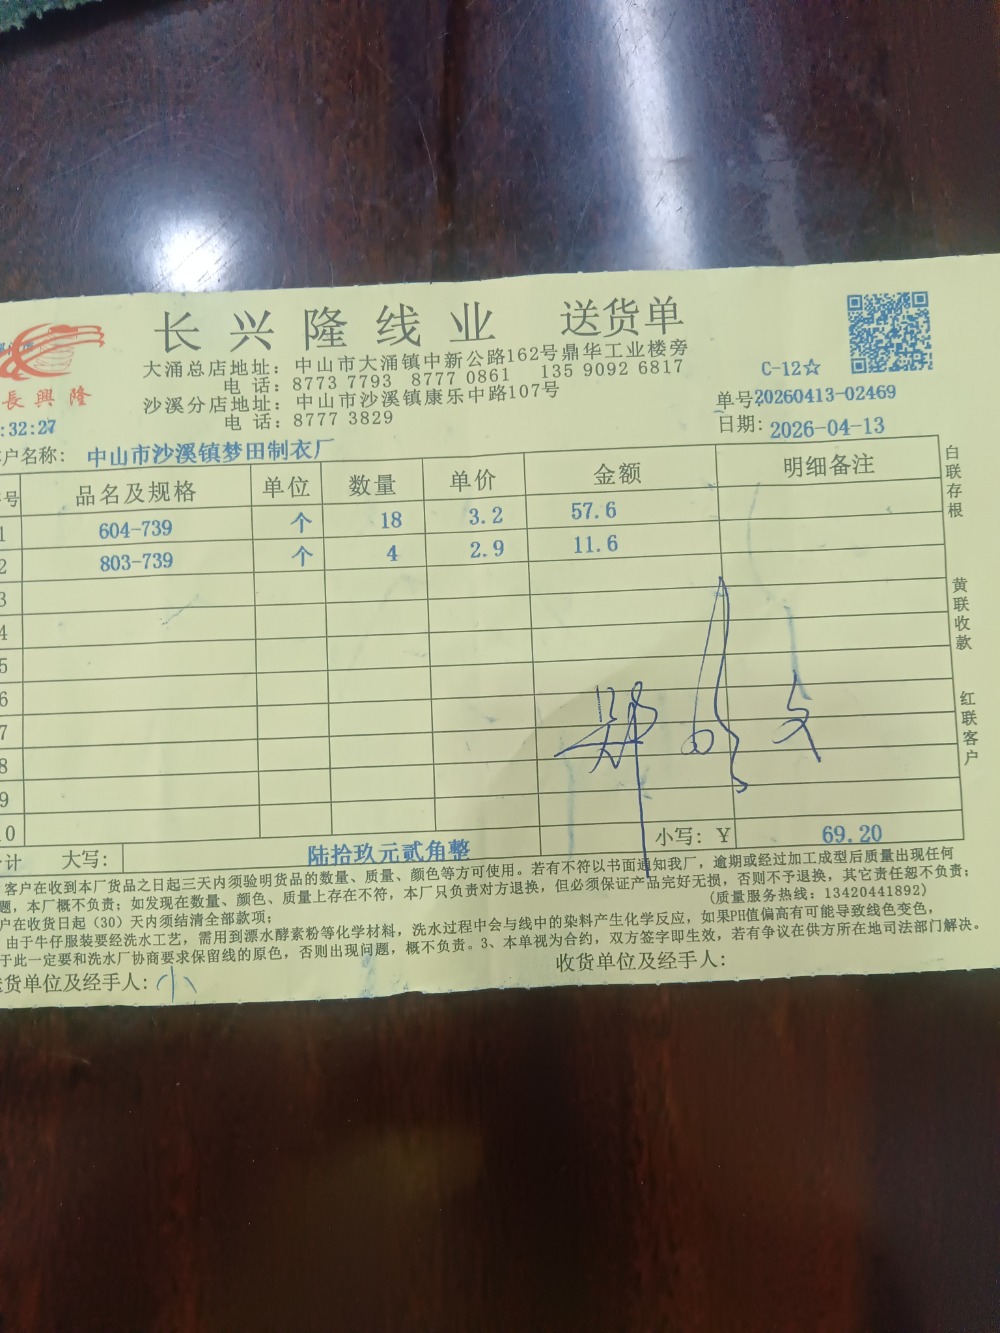 长兴隆线业 送货单
大涌总店地址：中山市大涌镇中新公路162号鼎华工业楼旁
电 话：8773 7793 8777 0861 135 9092 6817
沙溪分店地址：中山市沙溪镇康乐中路107号
电 话：8777 3829
長興隆
C-12☆
单号:20260413-02469
日期：2026-04-13
:32:27
户名称： 中山市沙溪镇梦田制衣厂
号 品名及规格 单位 数量 单价 金额 明细备注
1 604-739 个 18 3.2 57.6
2 803-739 个 4 2.9 11.6
3
4
5
6
7
8
9
10
计 大写： 陆拾玖元贰角整 小写：￥ 69.20
白联存根
黄联收款
红联客户
客户在收到本厂货品之日起三天内须验明货品的数量、质量、颜色等方可使用。若有不符以书面通知我厂，逾期或经过加工成型后质量出现任何
题，本厂概不负责；如发现在数量、颜色、质量上存在不符，本厂只负责对方退换，但必须保证产品完好无损，否则不予退换，其它责任恕不负责；
户在收货日起（30）天内须结清全部款项； （质量服务热线：13420441892）
由于牛仔服装要经洗水工艺，需用到漂水酵素粉等化学材料，洗水过程中会与线中的染料产生化学反应，如果PH值偏高有可能导致线色变色，
于此一定要和洗水厂协商要求保留线的原色，否则出现问题，概不负责。3、本单视为合约，双方签字即生效，若有争议在供方所在地司法部门解决。
送货单位及经手人：小 收货单位及经手人：